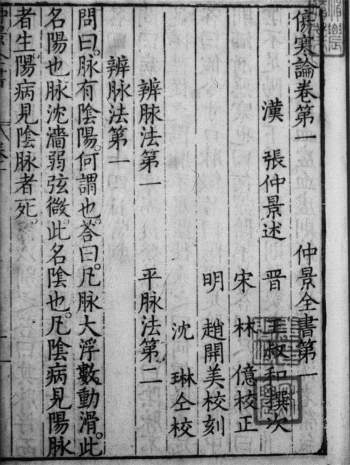 傷寒論卷第一 仲景全書第一
漢 張仲景述 晉 王叔和撰次
宋 林億校正
明 趙開美校刻
沈琳仝校
辨脉法第一 平脉法第二
辨脉法第一
問曰。脉有陰陽。何謂也。荅曰。凡脉大浮數動滑。此
名陽也。脉沈濇弱弦微。此名陰也。凡陰病見陽脉
者生。陽病見陰脉者死。